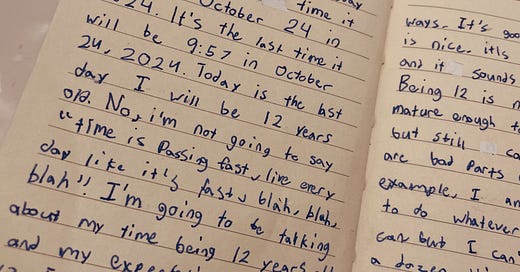 time it
24. It's the last time it
October 24 in
will be 9:57 in October
24, 2024. Today is the last
day I will be 12 years
old. No, i'm not going to say
"time is passing fast, live every
day like it's fast, blah, blah,
blah" I'm going to be talking
about my time being 12 years
and my
ways. It's
is nice. it's
and it sounds
Being 12 is
mature enough
but still
are bad parts
example, I am
to do whatever
can but I can
a dozen